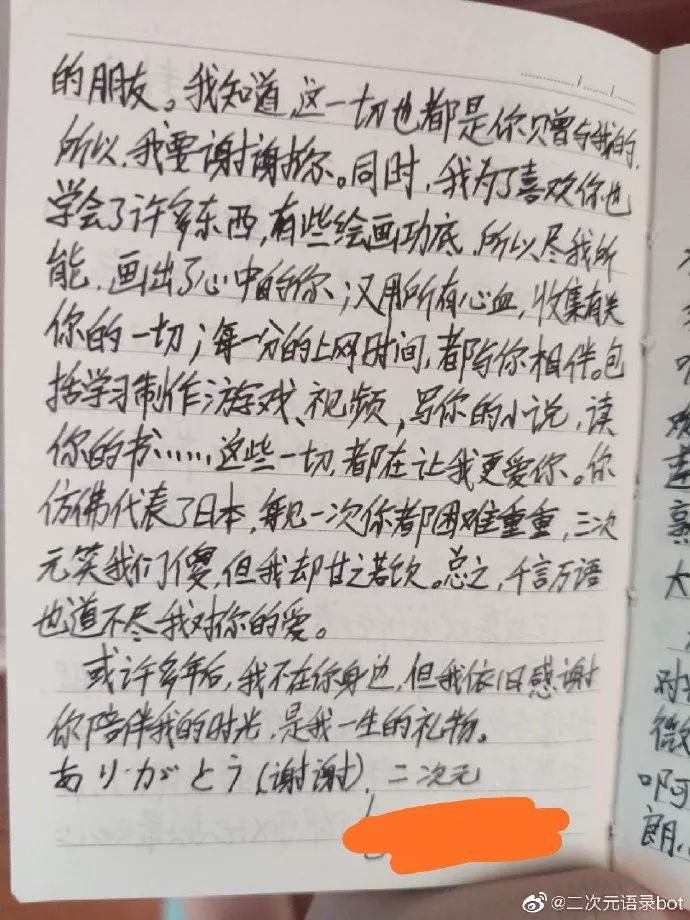 的朋友。我知道,这一切也都是你赠与我的,
所以,我要谢谢你。同时,我为了喜欢你也
学会了许多东西,有些绘画功底,所以尽我所
能,画出了心中的你;又用所有心血,收集有关
你的一切;每一分的上网时间,都与你相伴。包
括学习制作游戏、视频,写你的小说,读
你的书……这些一切,都在让我更爱你。你
仿佛代表了日本,每见一次你都困难重重,三次
元笑我们傻,但我却甘之若饮。总之,千言万语
也道不尽我对你的爱。
或许多年后,我不在你身边,但我依旧感谢
你陪伴我的时光,是我一生的礼物。
ありがとう(谢谢),二次元
对
微
啊
朗
大
@二次元语录bot